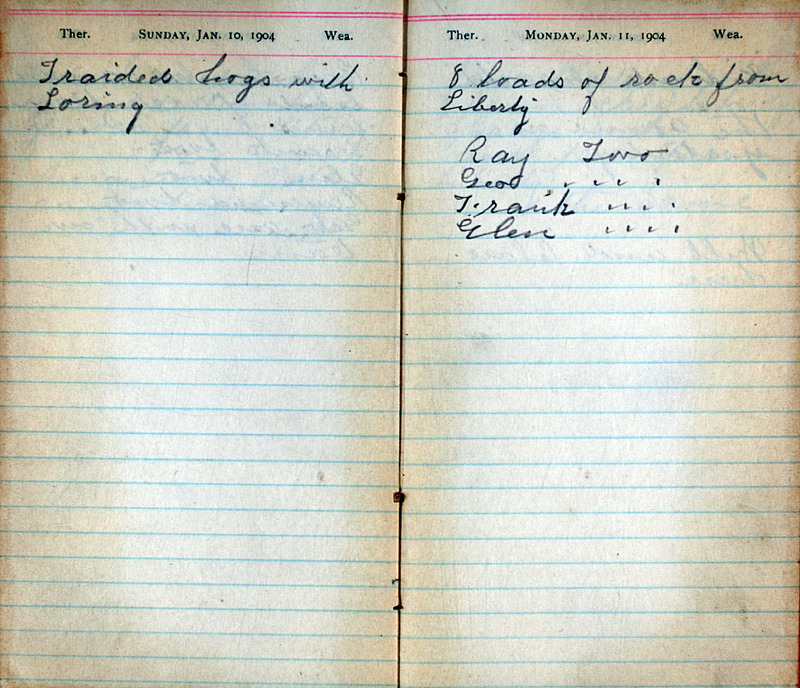 Ther. SUNDAY, JAN. 10, 1904 Wea.
Traided hogs with
Loring
Ther. MONDAY, JAN. 11, 1904 Wea.
8 loads of rock from
Liberty
Ray Two
Geo " "
Frank " "
Glen " "